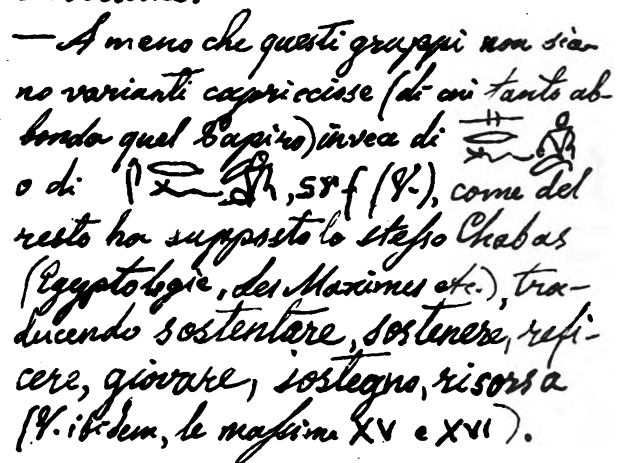 — A meno che questi gruppi non sia-
no varianti capricciose (di cui tanto ab-
bonda quel Papiro) invece di 𓋴𓂋𓆑𓀁
o di 𓋴𓂋𓆑𓀁, srf (V.), come del
resto ha supposto lo stesso Chabas
(Egyptologie, des Maximes etc.), tra-
ducendo sostentare, sostenere, refi-
cere, giovare, sostegno, risorsa
(V. ibidem, le massime XV e XVI).